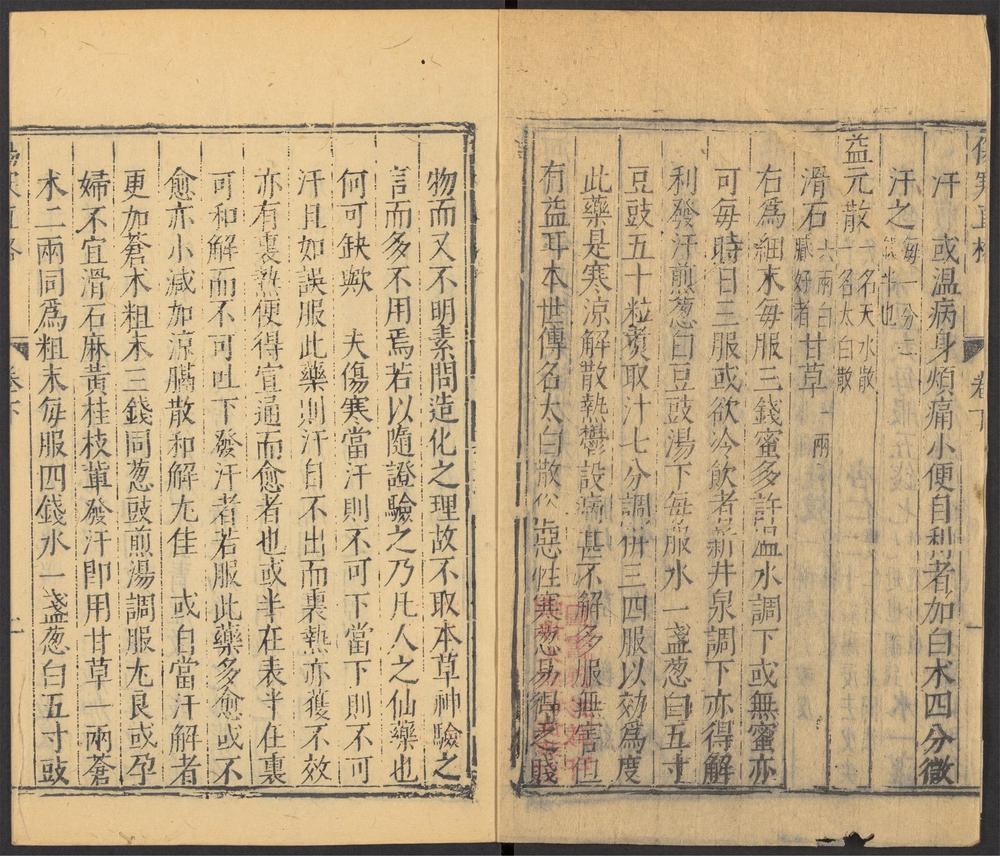 傷寒直格 卷下
汗　或溫病身煩痛小便自利者加白朮四分微
汗之
益元散 一名天水散 一名太白散
滑石 六兩白膩好者 甘草 一兩
右為細末每服三錢蜜多許溫水調下或無蜜亦
可每時日三服或欲冷飲者新井泉調下亦得解
利發汗煎葱白豆豉湯下每服水一盞葱白五寸
豆豉五十粒煑取汁七分調併三四服以效為度
此藥是寒涼解散熱鬱設病甚不解多服無害但
有益耳本世傳名太白散 惡性寒葱易 之賤
物而又不明素問造化之理故不取本草神驗之
言而多不用焉若以隨證驗之乃凡人之仙藥也
何可缺歟　夫傷寒當汗則不可下當下則不可
汗且如誤服此藥則汗自不出而裏熱亦獲不效
亦有裏熱便得宣通而愈者也或半在表半在裏
可和解而不可吐下發汗者若服此藥多愈或不
愈亦小減加涼膈散和解尤佳　或自當汗解者
更加蒼朮粗末三錢同葱豉煎湯調服尤良或孕
婦不宜滑石麻黃桂枝軰發汗卽用甘草一兩蒼
朮二兩同為粗末每服四錢水一盞葱白五寸豉
卷下